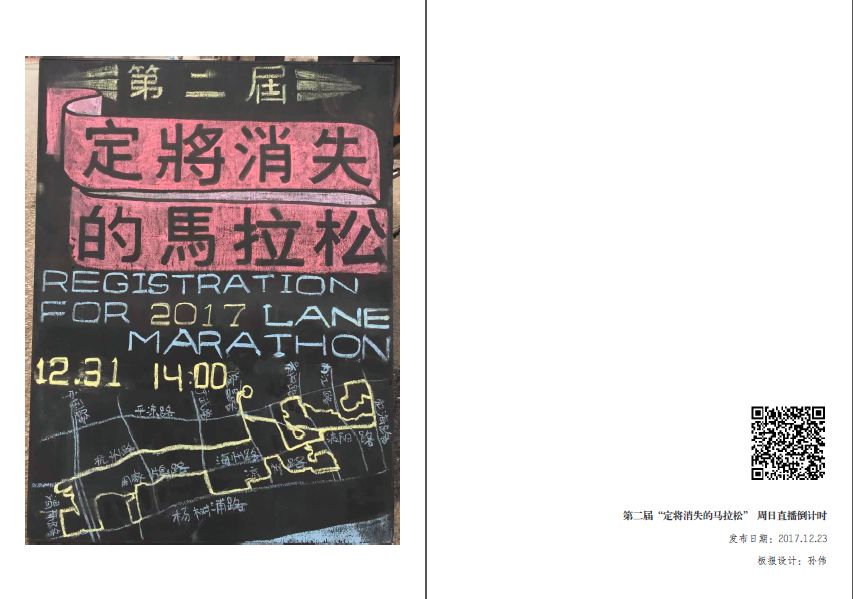 第二届
定將消失
的馬拉松
REGISTRATION
FOR 2017 LANE
MARATHON
12.31 14:00
平凉路
杭州路
海州路
杨树浦路
第二届“定将消失的马拉松” 周日直播倒计时
发布日期：2017.12.23
板报设计：孙伟